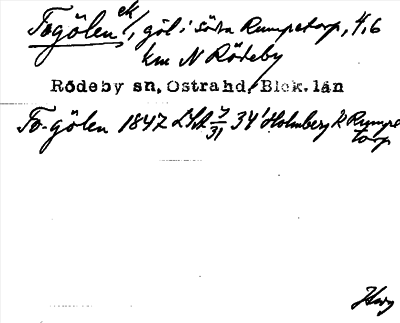 Fogölen ek/, göl i södra Rumpetorp, 4,6
km N Rödeby
Rödeby sn, Östra hd, Blek. län
Fo-gölen 1847 LSA 7/31 34' Holmberg k Rumpe
torp